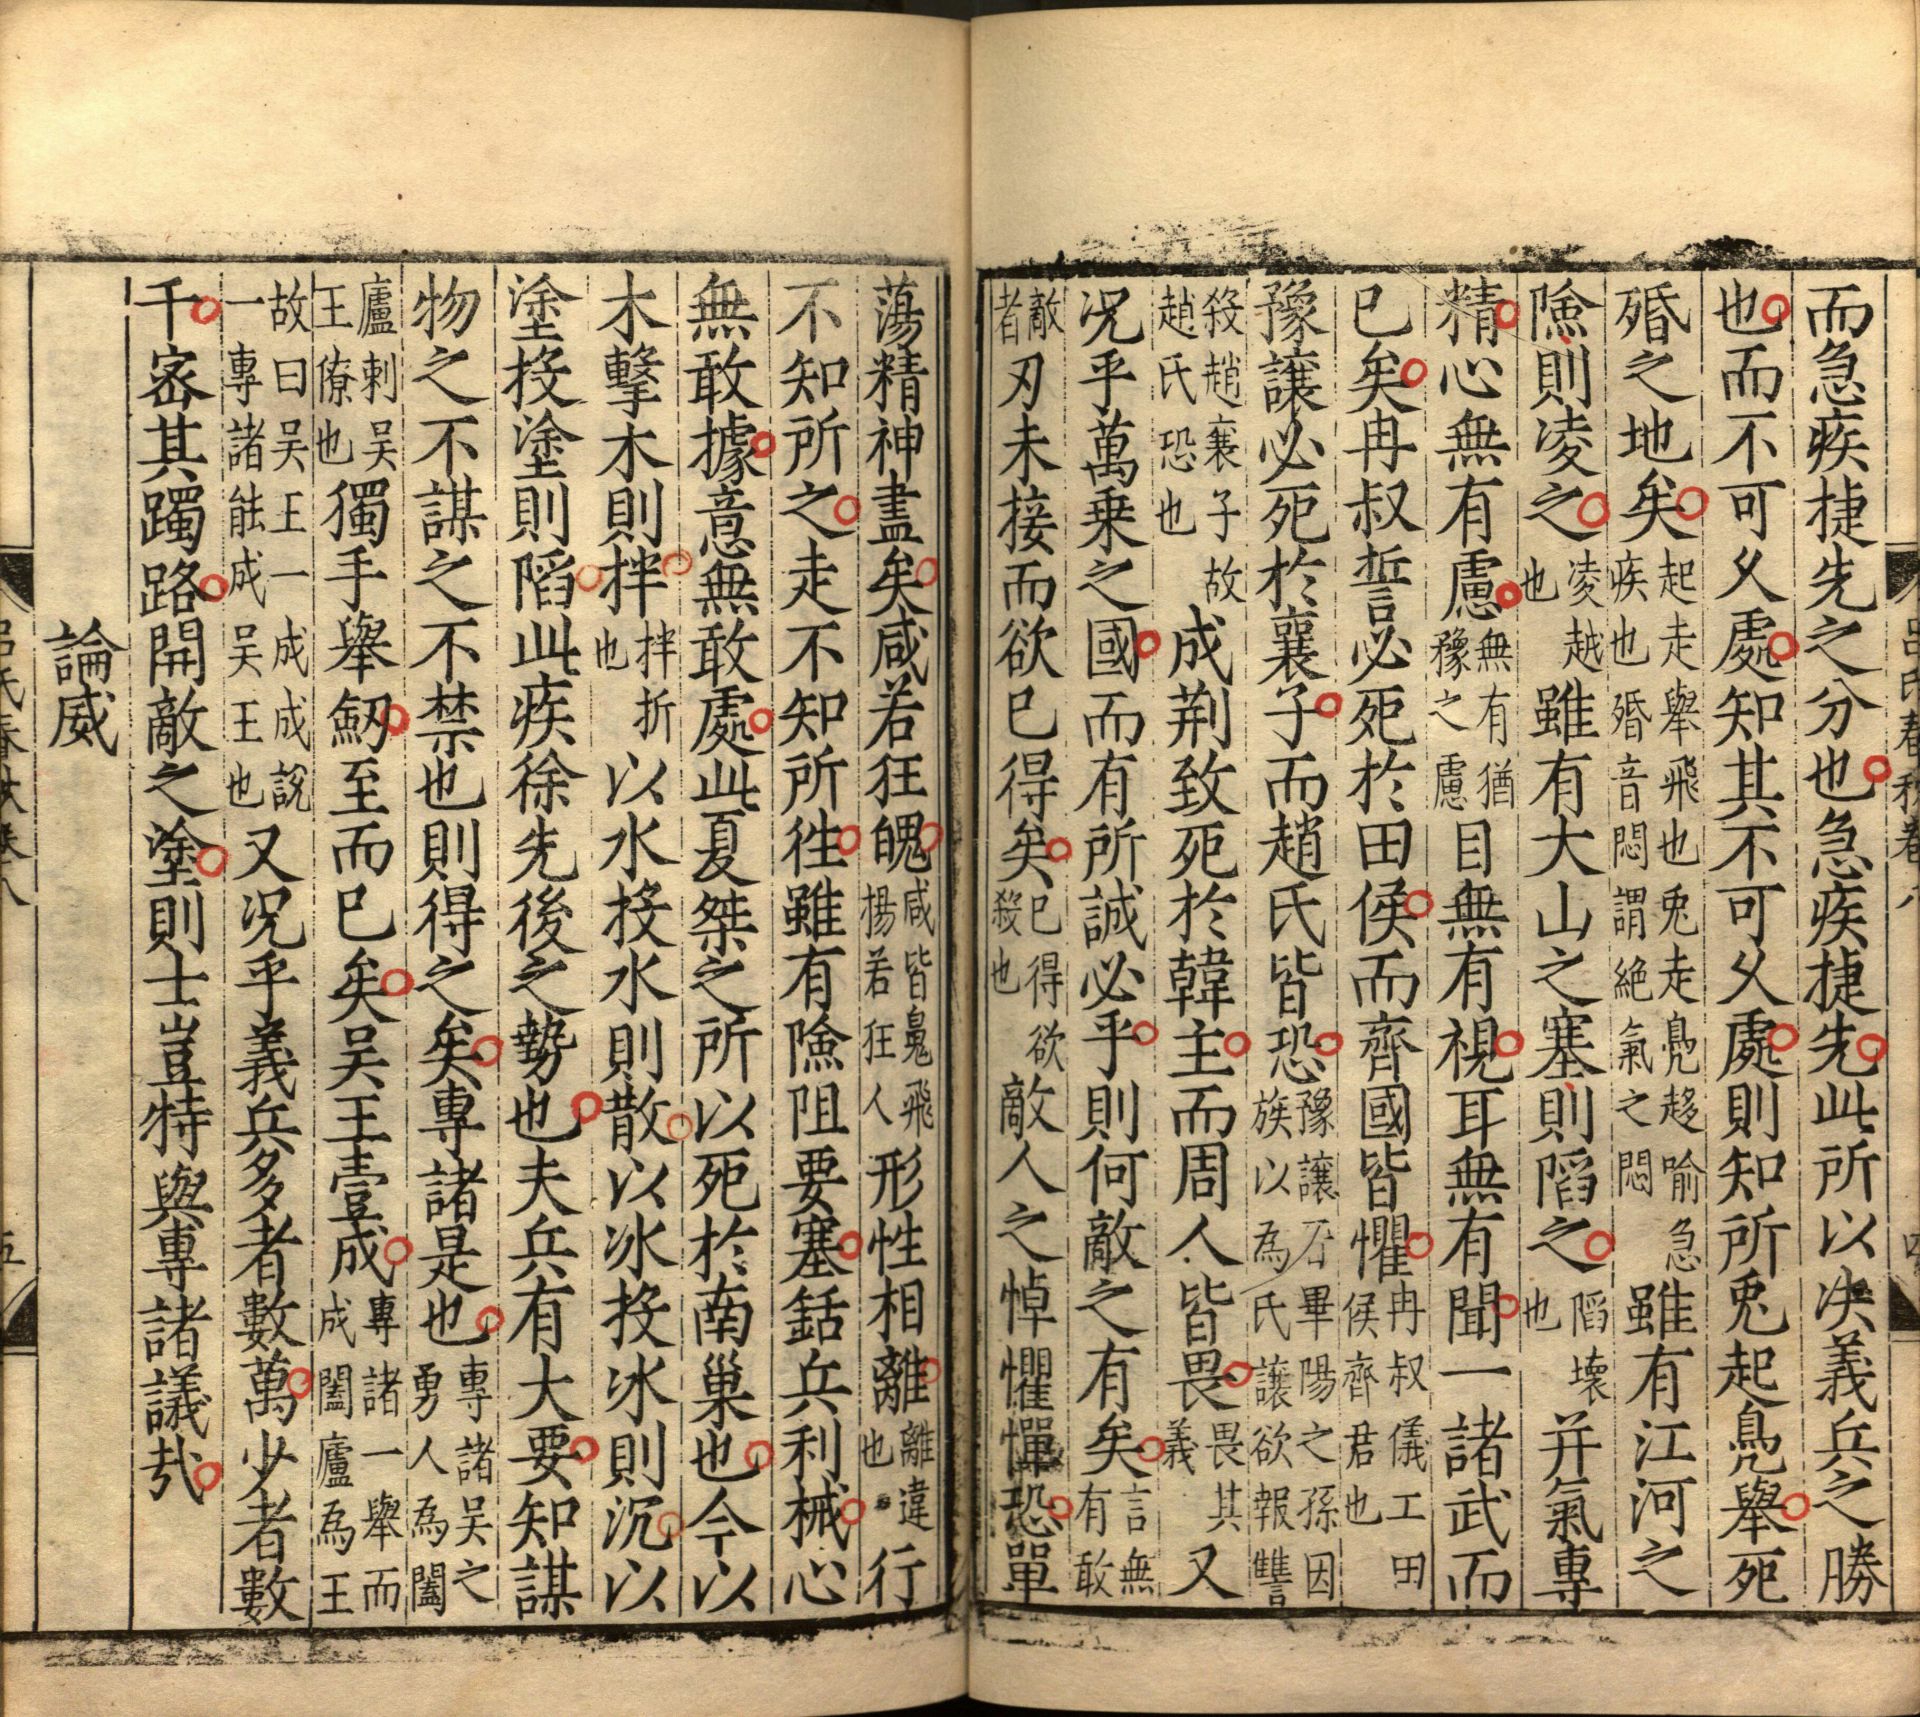 而急疾捷先之分也急疾捷先此所以决義兵之勝
也而不可乆處知其不可乆處則知所兎起鳧舉死
殙之地矣起走舉飛也兎走鳧趍喻急疾也殙音悶謂絶氣之悶雖有江河之
險則凌之凌越也雖有大山之塞則䧟之䧟壞也并氣專
精心無有慮無有猶豫之慮目無有視耳無有聞一諸武而
已矣冉叔誓必死於田侯而齊國皆懼冉叔儀工田侯齊君也
豫讓必死於襄子而趙氏皆恐豫讓畢陽之孫因族以為氏讓欲報讐
殺趙襄子故趙氏恐也成荆致死於韓主而周人皆畏畏其義又
况乎萬乗之國而有所誠必乎則何敵之有矣言無有敢
敵者刃未接而欲已得矣已得欲殺也敵人之悼懼憚恐單
蕩精神盡矣咸若狂魄咸皆㲋飛揚若狂人形性相離離違也行
不知所之走不知所徃雖有險阻要塞銛兵利械心
無敢據意無敢處此夏桀之所以死於南巢也今以
木擊木則拌拌折也以水投水則散以冰投冰則沉以
塗投塗則䧟此疾徐先後之勢也夫兵有大要知謀
物之不謀之不禁也則得之矣專諸是也專諸吴之勇人為闔
廬刺吴王僚也獨手舉劒至而已矣吴王壹成專諸一舉而成闔廬為王
故曰吴王一成成説一專諸能成吴王也又况乎義兵多者數萬少者數
千宻其躅路開敵之塗則士豈特與專諸議㢤
論威